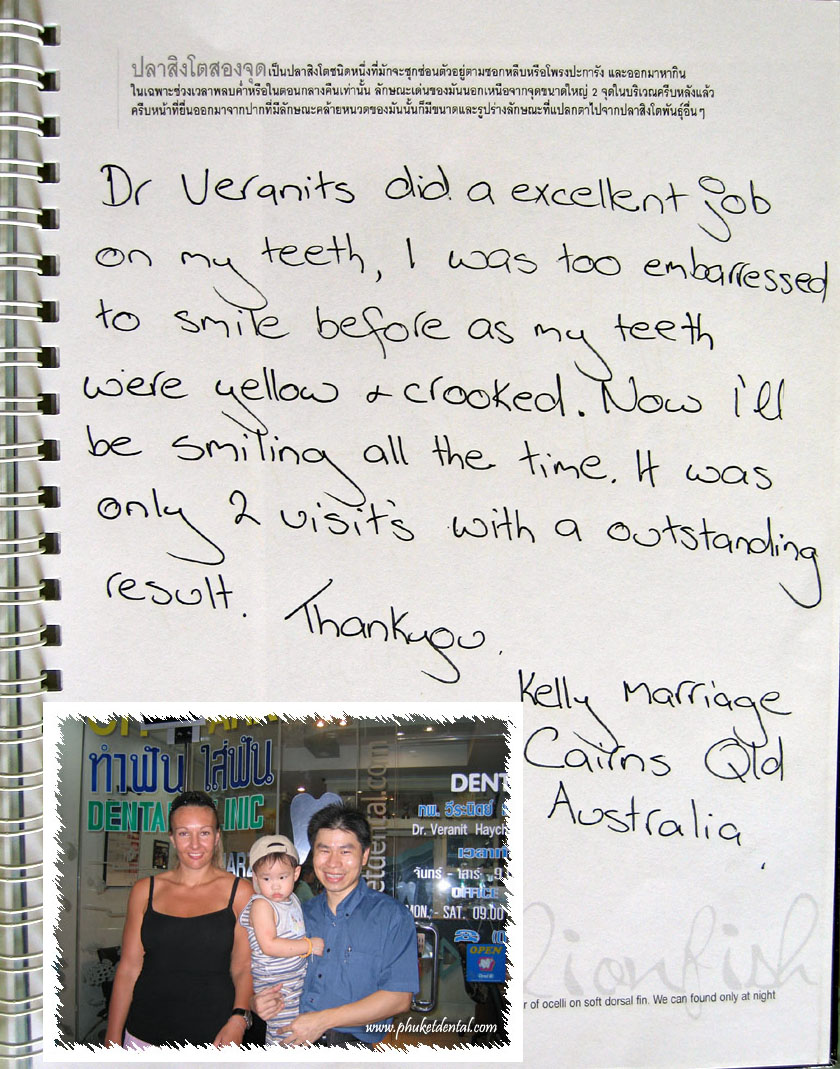 ปลาสิงโตสองจุด เป็นปลาสิงโตชนิดหนึ่งที่มักจะซุกซ่อนตัวอยู่ตามซอกหลืบหรือโพรงปะการัง และออกมาหากิน
ในเฉพาะช่วงเวลาพลบค่ำหรือในตอนกลางคืนเท่านั้น ลักษณะเด่นของมันนอกเหนือจากจุดขนาดใหญ่ 2 จุดในบริเวณครีบหลังแล้ว
ครีบหน้าที่ยื่นออกมาจากปากที่มีลักษณะคล้ายหนวดของมันนั้นก็มีขนาดและรูปร่างลักษณะที่แปลกตาไปจากปลาสิงโตพันธุ์อื่น ๆ
Dr Veranits did a excellent job
on my teeth, I was too embarressed
to smile before as my teeth
were yellow & crooked. Now i'll
be smiling all the time. It was
only 2 visit's with a outstanding
result. Thankyou.
Kelly Marriage
Cairns Qld
Australia.
ทำฟัน ใส่ฟัน
DENTAL CLINIC
DENT
ทพ. วีระนิตย์
Dr. Veranit Haych
จันทร์ - เสาร์
OFFICE
MON. - SAT. 09.00
OPEN
etdental.com
www.phuketdental.com
lionfish
r of ocelli on soft dorsal fin. We can found only at night